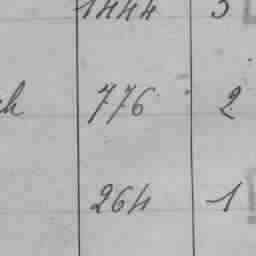 1444 3
776 2
264 1